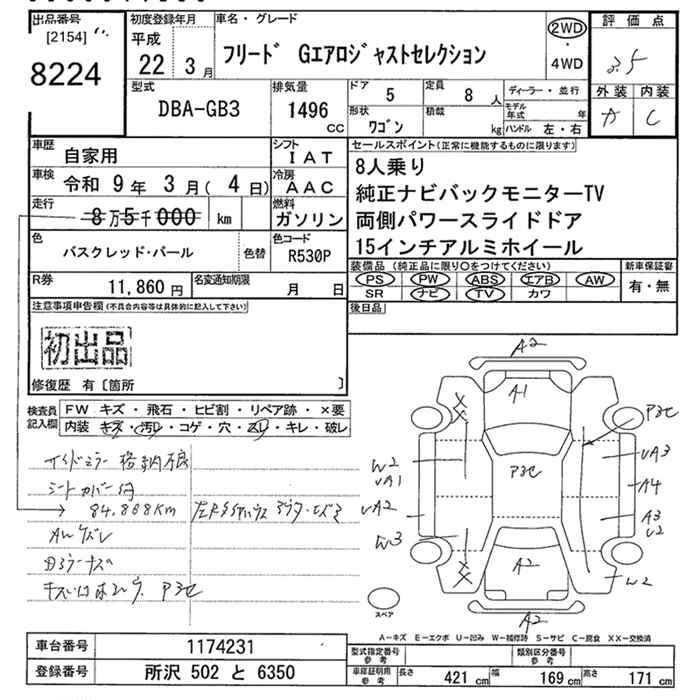 出品番号 初度登録年月 車名・グレード 評価点
[2154]
8224
平成
22 3月
フリード Gエアロジャストセレクション
2WD
・
4WD
3.5
型式 排気量 ドア 定員 ディーラー・並行 外装 内装
DBA-GB3 1496 cc 5 8人
形状 積載 モデル年式 年
ワゴン kg ハンドル 左・右
A C
車歴 自家用 シフト IAT
車検 令和 9年 3月(4日) 冷房 AAC
走行 8万5千000 km 燃料 ガソリン
色 バスクレッド・パール 色替 色コード R530P
R券 11,860円 名変通知期限 月 日
セールスポイント(正常に機能するものに限ります)
8人乗り
純正ナビバックモニターTV
両側パワースライドドア
15インチアルミホイール
装備品(純正品に限り○をつけてください) 新車保証書
PS PW ABS エアB AW 有・無
SR ナビ TV カワ
後日品
注意事項申告欄(不具合内容等は具体的に記入して下さい)
初出品
修復歴 有〔箇所 〕
検査員記入欄 FW キズ・飛石・ヒビ割・リペア跡・×要
内装 キズ・汚レ・コゲ・穴・スレ・キレ・破レ
サイドミラー 格納不良
シートカバー付
84,888KM
AWズレ
A2
A1
P3セ
W2
UA1
UA2
W3
P3セ
UA3
A4
A3
U2
W2
A2
A2
スペア
A-キズ E-エクボ U-凹み W-補修跡 S-サビ C-腐食 XX-交換済
車台番号 1174231
登録番号 所沢 502 と 6350
型式指定番号 参考 類別区分番号 参考
車庫証明用 参考 長さ 421 cm 幅 169 cm 高さ 171 cm